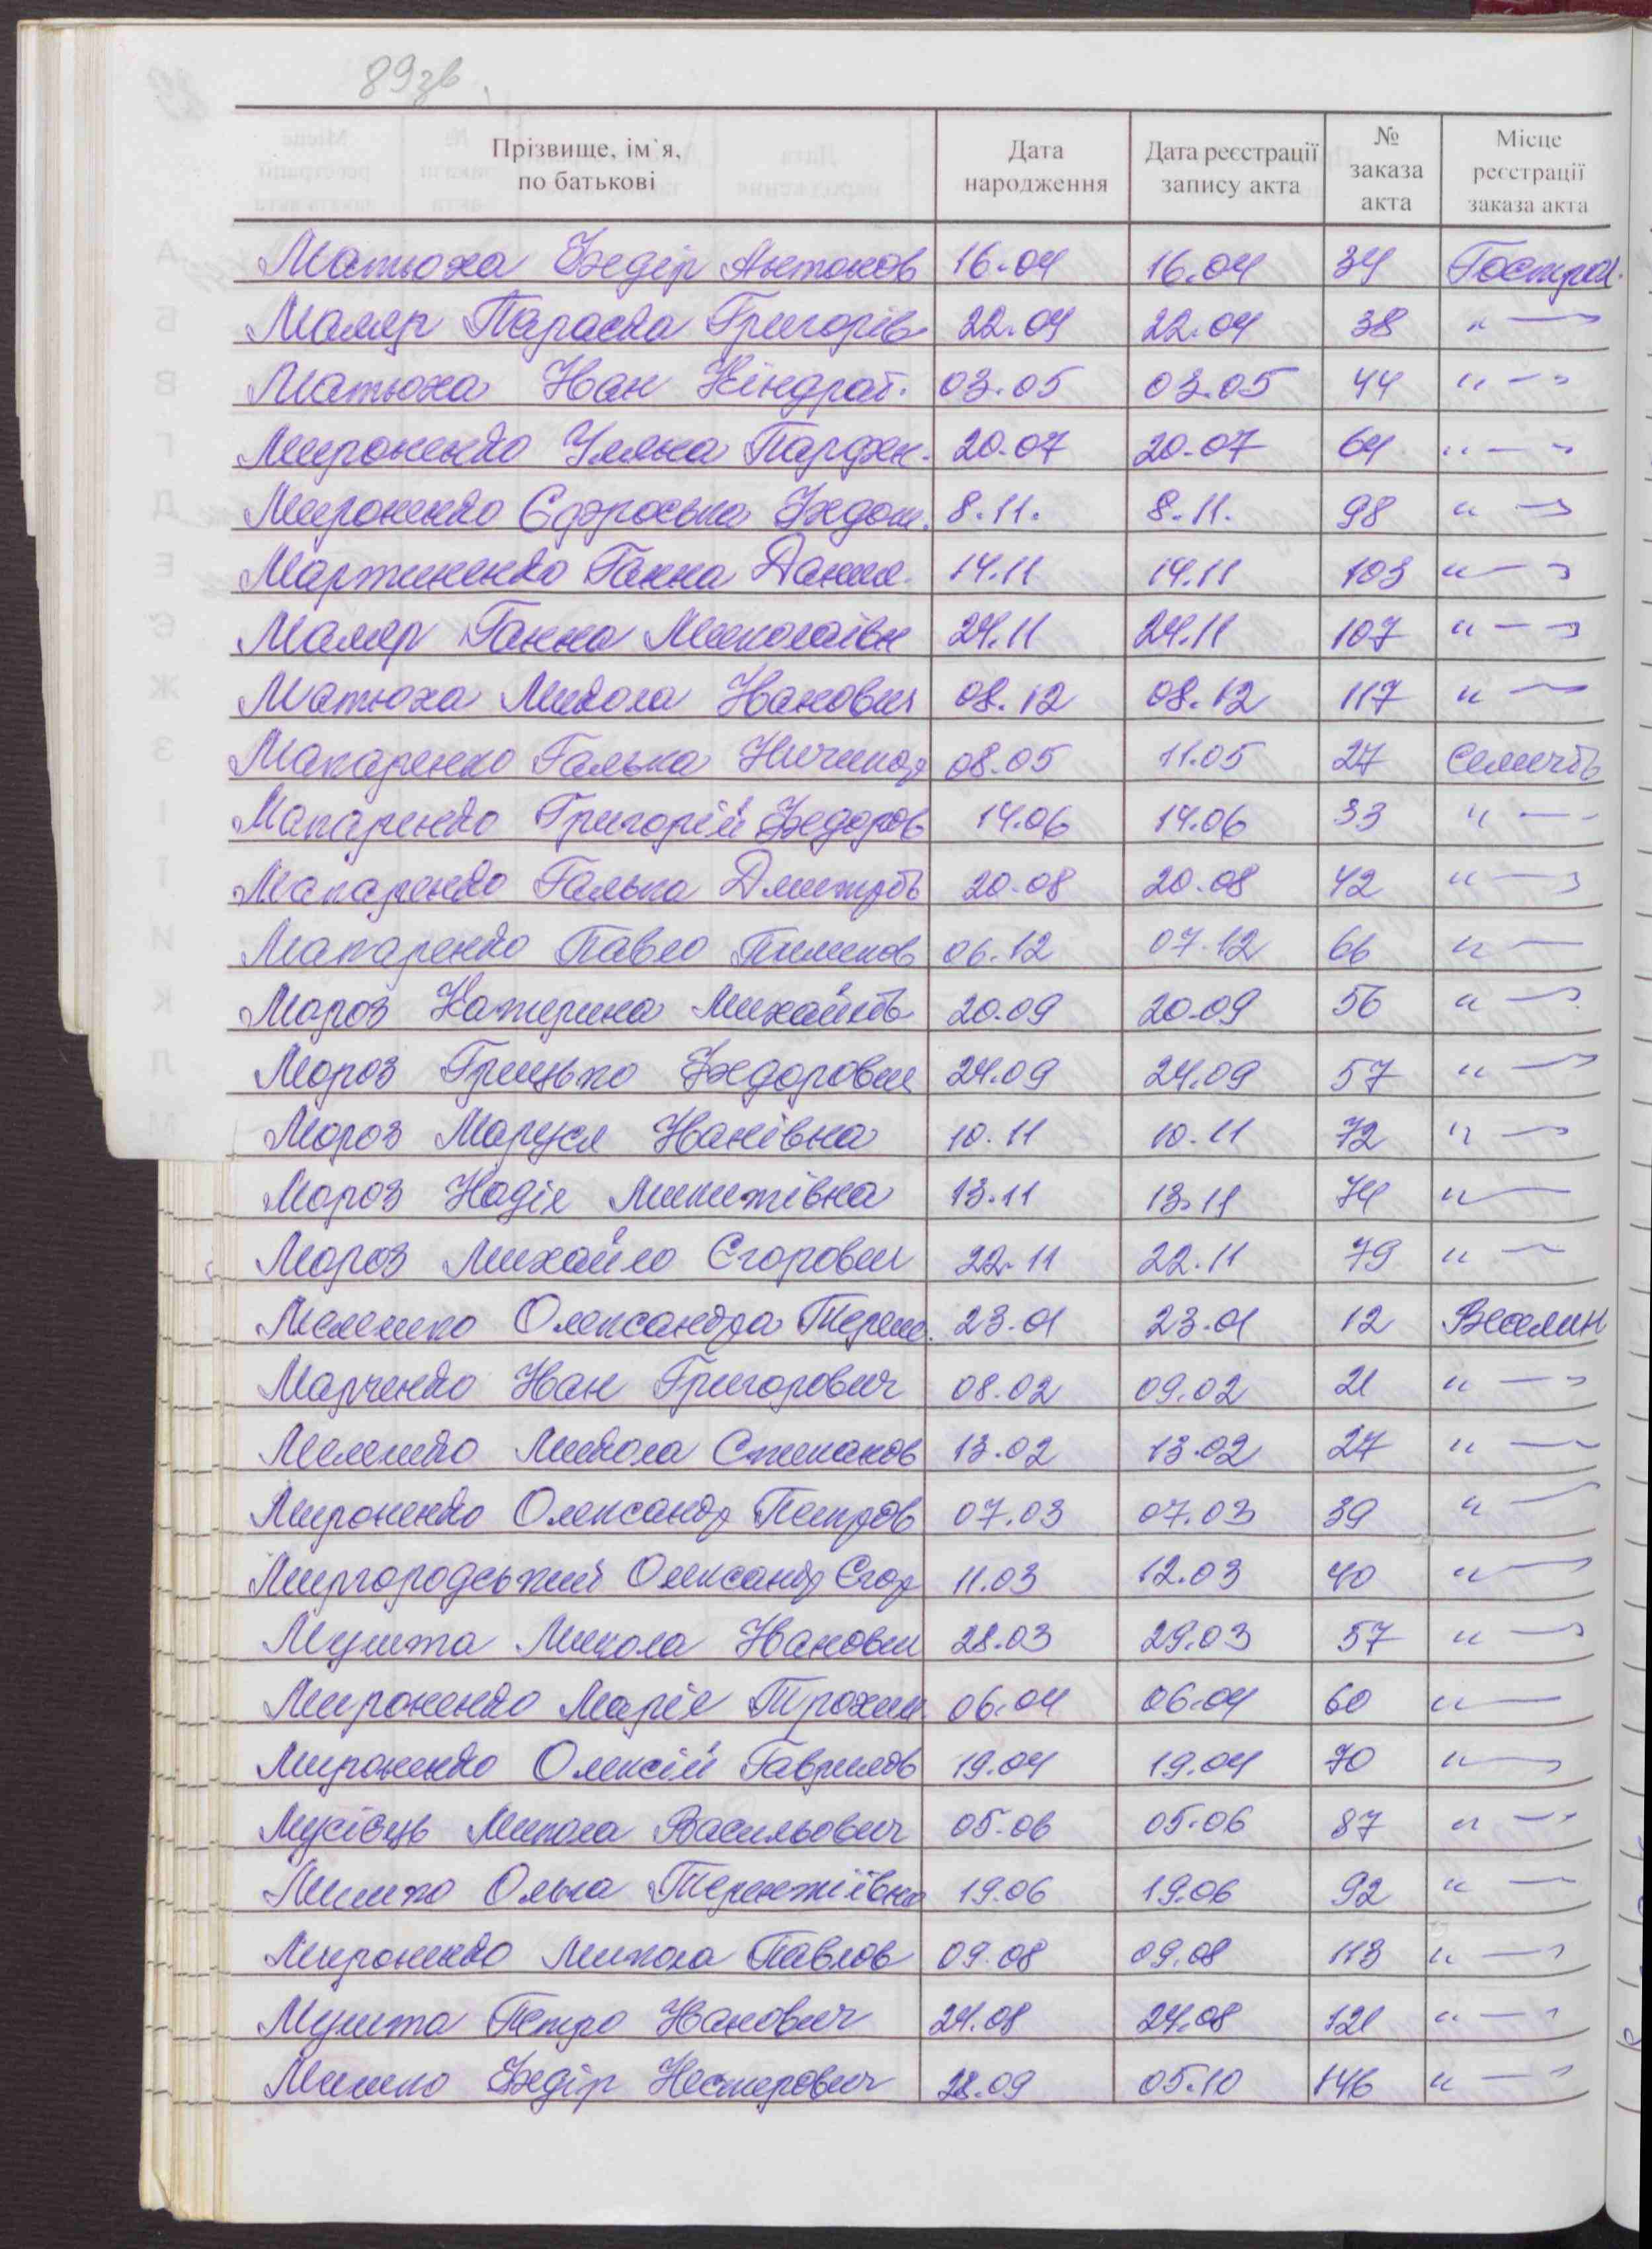 89зв
Прізвище, ім`я, по батькові Дата народження Дата реєстрації запису акта № заказа акта Місце реєстрації заказа акта
Матюха Федір Антонов 16.04 16.04 34 Гострол.
Маляр Параска Григорів 22.04 22.04 38 "—
Матюха Іван Кіндрат. 03.05 03.05 44 "—"
Мироненко Уляна Парфен. 20.07 20.07 64 "—"
Мироненко Єфроська Федот. 8.11. 8.11. 98 "—"
Мартиненко Ганна Данил. 14.11 14.11 103 "—"
Маляр Ганна Миколаївн 24.11 24.11 107 "—"
Матюха Микола Іванович 08.12 08.12 117 "—
Макаренко Галька Ничипор 08.05 11.05 27 Селичів
Макаренко Григорій Федоров 14.06 14.06 33 "—
Макаренко Галька Дмитрів 20.08 20.08 42 "—"
Макаренко Павло Пилипов 06.12 07.12 66 "—
Мороз Катерина Михайлів 20.09 20.09 56 "—"
Мороз Грицько Федорович 24.09 24.09 57 "—"
Мороз Маруся Іванівна 10.11 10.11 72 "—"
Мороз Надія Микитівна 13.11 13.11 74 "—
Мороз Михайло Єгорович 22.11 22.11 79 "—
Мелешко Олександра Тереш. 23.01 23.01 12 Веселин
Марченко Іван Григорович 08.02 09.02 21 "—"
Мелешко Микола Степанов 13.02 13.02 27 "—
Мироненко Олександр Петров 07.03 07.03 39 "—
Миргородський Олександр Єгор 11.03 12.03 40 "—
Мушта Микола Іванович 28.03 29.03 57 "—"
Мироненко Марія Трохим 06.04 06.04 60 "—
Мироненко Олексій Гаврилов 19.04 19.04 70 "—"
Микола Васильович 05.06 05.06 87 "—"
Мишко Ольга Терентіївна 19.06 19.06 92 "—
Мироненко Микола Павлов 09.08 09.08 113 "—"
Мушта Петро Іванович 24.08 24.08 121 "—"
Мишко Федір Нестерович 28.09 05.10 146 "—"